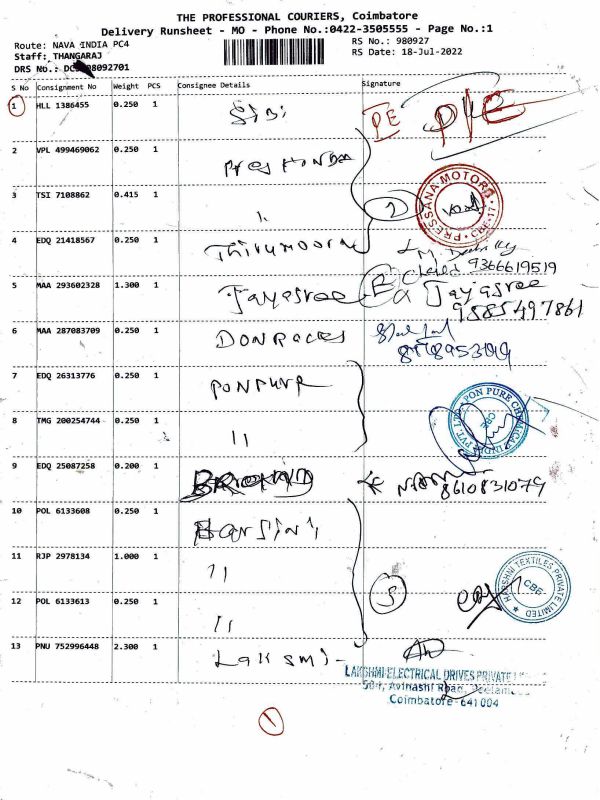 THE PROFESSIONAL COURIERS, Coimbatore
Delivery Runsheet - MO - Phone No.:0422-3505555 - Page No.:1
Route: NAVA INDIA PC4
RS No.: 980927
Staff: THANGARAJ
RS Date: 18-Jul-2022
DRS No.: 98092701
S No Consignment No Weight PCS Consignee Details Signature
1 HLL 1386455 0.250 1 Sibi PE
2 VPL 499469062 0.250 1
PRESSANA MOTORS
CBE-17
3 TSI 7108862 0.415 1 "
4 EDQ 21418567 0.250 1
9366619519
5 MAA 293602328 1.300 1 Jayasree Jayasree
9585497861
6 MAA 287083709 0.250 1
7 EDQ 26313776 0.250 1 PONPURE
PON PURE CHEMICAL INDIA PVT. LTD.
CBE
8 TMG 200254744 0.250 1 "
9 EDQ 25087258 0.200 1
8610831079
10 POL 6133608 0.250 1 Harsini
11 RJP 2978134 1.000 1 "
HARSHNI TEXTILES PRIVATE LIMITED
CBE
12 POL 6133613 0.250 1 "
13 PNU 752996448 2.300 1 Laksmi-
LAKSHMI ELECTRICAL DRIVES PRIVATE
504, Avinashi Road,
Coimbatore-641004
1